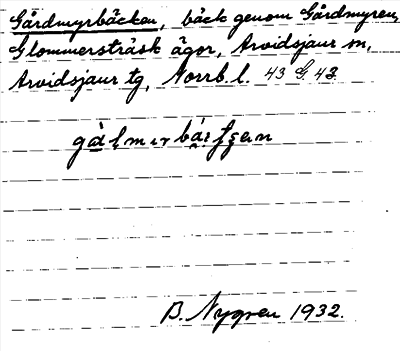 Gårdmyrbäcken, bäck genom Gårdmyren,
Glommersträsk ägor, Arvidsjaur sn,
Arvidsjaur tg, Norrb. l. 43 G 42
B. Nygren 1932.